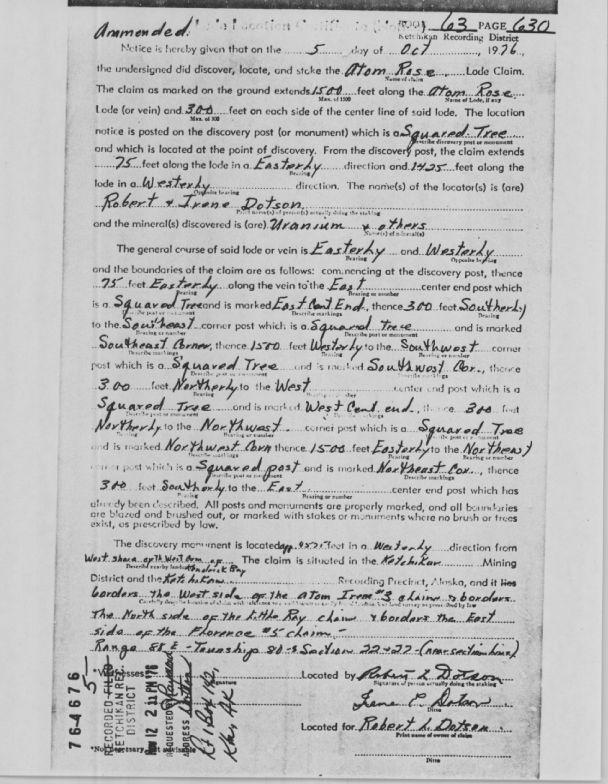 Ammended.
63 PAGE 630
Ketchikan Recording District
Notice is hereby given that on the 5 day of Oct, 1976,
the undersigned did discover, locate, and stake the Atom Rose Lode Claim.
Name of claim
The claim as marked on the ground extends 1500 feet along the Atom Rose
Max. of 1500 Name of Lode, if any
Lode (or vein) and 300 feet on each side of the center line of said lode. The location
Max. of 300
notice is posted on the discovery post (or monument) which is a Squared Tree
Describe discovery post or monument
and which is located at the point of discovery. From the discovery post, the claim extends
75 feet along the lode in a Easterly direction and 1425 feet along the
Bearing
lode in a Westerly direction. The name(s) of the locator(s) is (are)
Opposite bearing
Robert & Irene Dotson
Print name(s) of person(s) actually doing the staking
and the mineral(s) discovered is (are) Uranium & others
Name(s) of mineral(s)
The general course of said lode or vein is Easterly and Westerly
Bearing Opposite bearing
and the boundaries of the claim are as follows: commencing at the discovery post, thence
75 feet Easterly along the vein to the East center end post which
Bearing Bearing or number
is a Squared Tree and is marked East Cent End, thence 300 feet Southerly
Describe post or monument Describe markings Bearing
to the Southeast corner post which is a Squared Tree and is marked
Bearing or number Describe post or monument
Southeast Corner, thence 1500 feet Westerly to the Southwest corner
Describe markings Bearing Bearing or number
post which is a Squared Tree and is marked Southwest Cor., thence
Describe post or monument Describe markings
300 feet Northerly to the West center end post which is a
Bearing Bearing or number
Squared Tree and is marked West Cent. end, thence 300 feet
Describe post or monument Describe markings
Northerly to the Northwest corner post which is a Squared Tree
Bearing Bearing or number Describe post or monument
and is marked Northwest Corn thence 1500 feet Easterly to the Northeast
Describe markings Bearing Bearing or number
corner post which is a Squared post and is marked Northeast Cor., thence
Describe post or monument Describe markings
300 feet Southerly to the East center end post which has
Bearing Bearing or number
already been described. All posts and monuments are properly marked, and all boundaries
are blazed and brushed out, or marked with stakes or monuments where no brush or trees
exist, as prescribed by law.
The discovery monument is located app. feet in a Westerly direction from
West shore of th West Arm of The claim is situated in the Ketchikan Mining
Describe nearby landmark Kendrick Bay
District and the Ketchikan Recording Precinct, Alaska, and it lies
borders the West side of the Atom Irene #3 claim & borders
The North side of the Little Ray claim & borders the East
side of the Florence #5 claim -
Range 88 E - Township 80 - S Section 22 + 27 - (near section line)
Witnesses Located by Robert L Dotson
Signature Signature of person actually doing the staking
Irene E. Dotson
Ditto
Located for Robert L. Dotson
Print name of owner of claim
Ditto
*Not necessary, but advisable
76-4676
5-
RECORDED-FILED
KETCHIKAN REC.
DISTRICT
Nov 12 2 11 PM '76
REQUESTED BY
ADDRESS
Rt 1 Box
Ktn, AK